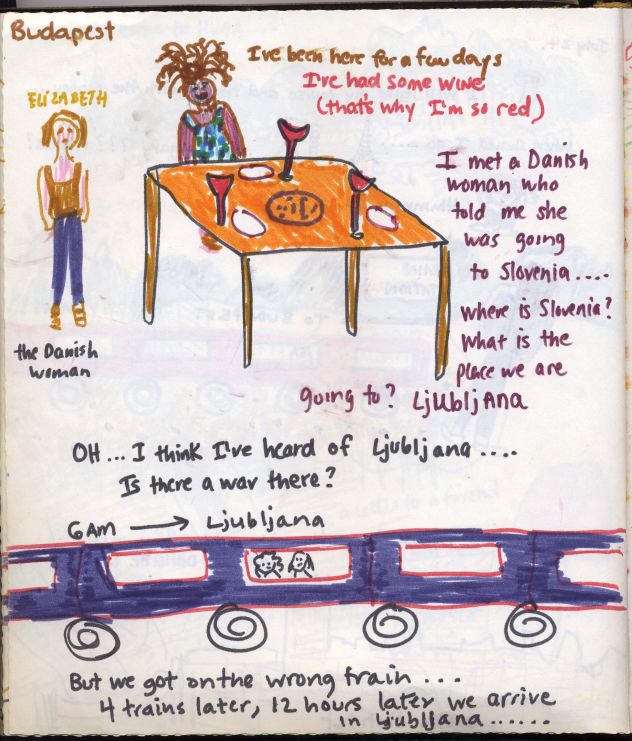 Budapest
I've been here for a few days
I've had some wine
(that's why I'm so red)
ELIZABETH
I met a Danish
woman who
told me she
was going
to Slovenia....
where is Slovenia?
What is the
place we are
going to? LjUbljAnA
the Danish
woman
OH... I think I've heard of Ljubljana....
Is there a war there?
6AM → Ljubljana
But we got on the wrong train...
4 trains later, 12 hours later we arrive
in Ljubljana......